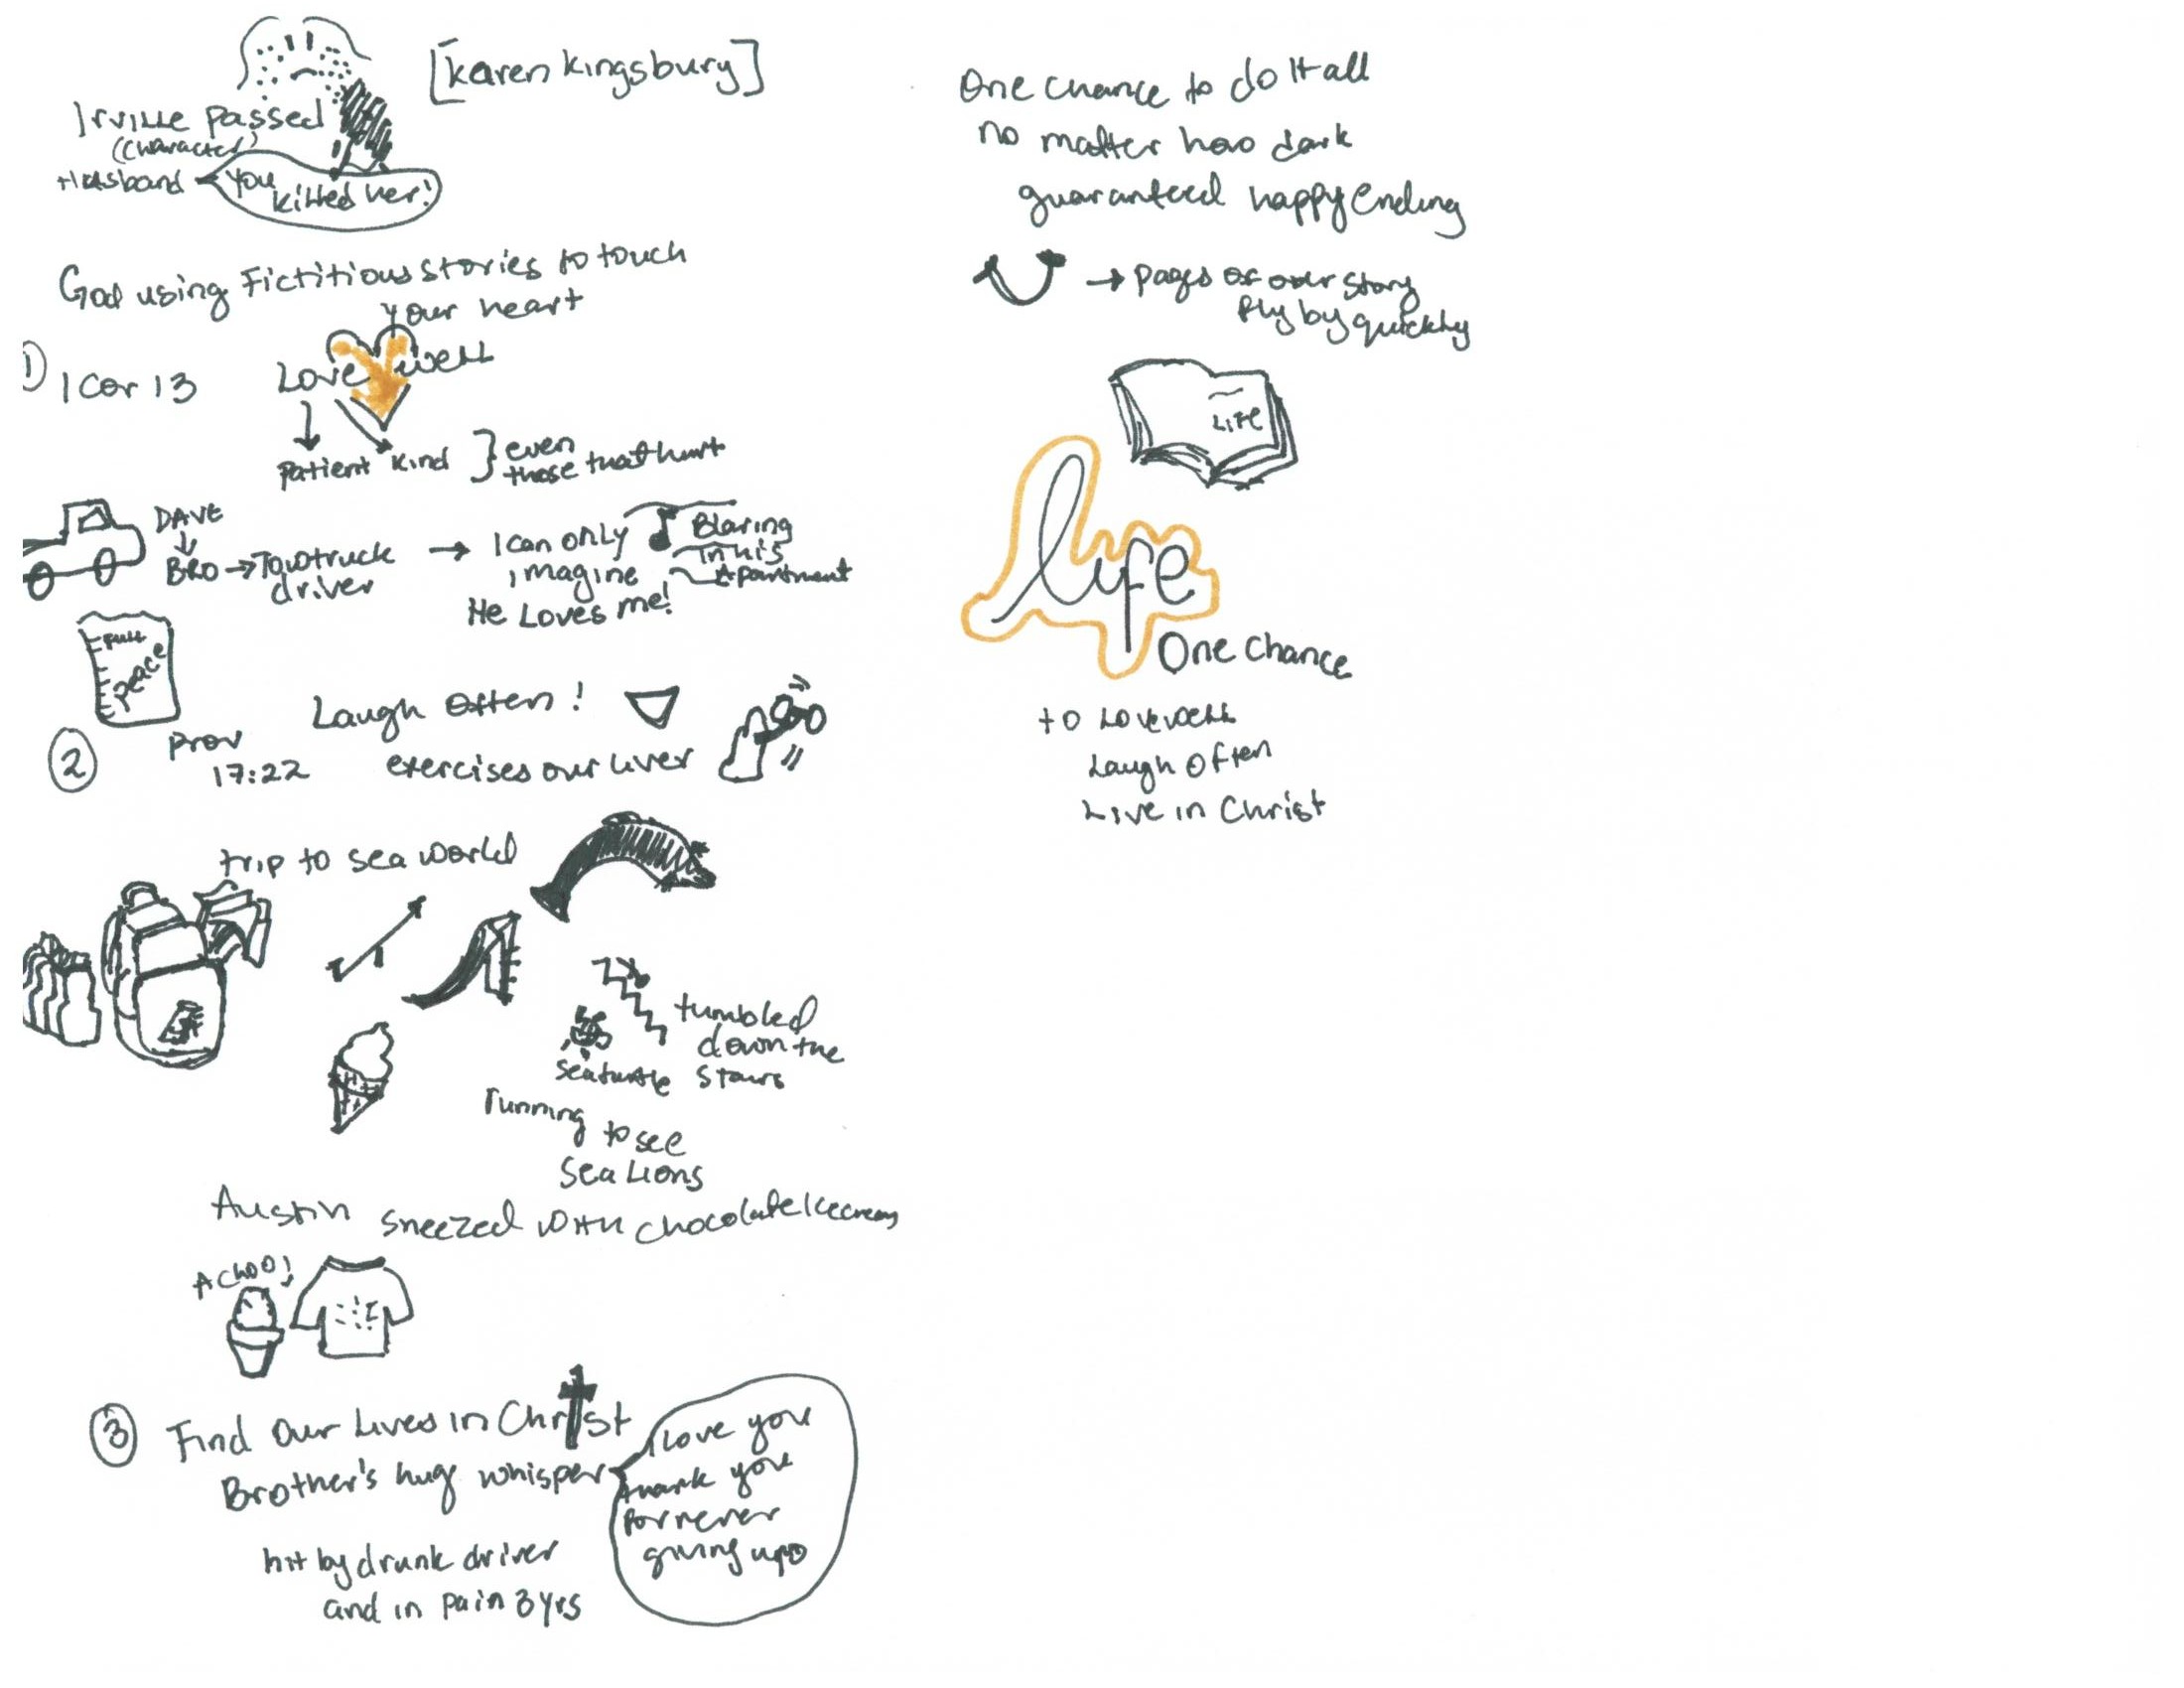 [Karen Kingsbury]
Irville Passed
(Character)
Husband
You
killed her!
God using Fictitious stories to touch
your heart
1
1 Cor 13
Love well
Patient Kind } even
those that hurt
DAVE
BRO → Tow truck
driver
→ I can only
imagine
Blaring
in his
Apartment
He Loves me!
Full
Peace
2
Prov
17:22
Laugh Often!
exercises our liver
trip to sea world
tumbled
down the
stairs
sea turtle
running
to see
Sea Lions
Austin sneezed with chocolate Icecream
ACHOO!
LIFE
3 Find Our Lives in Christ
Brother's hug whisper
I love you
thank you
for never
giving up
hit by drunk driver
and in pain 3 yrs
One chance to do it all
no matter how dark
guaranteed happy Ending
→ pages of our story
fly by quickly
life
One Chance
to Love well
Laugh Often
Live in Christ